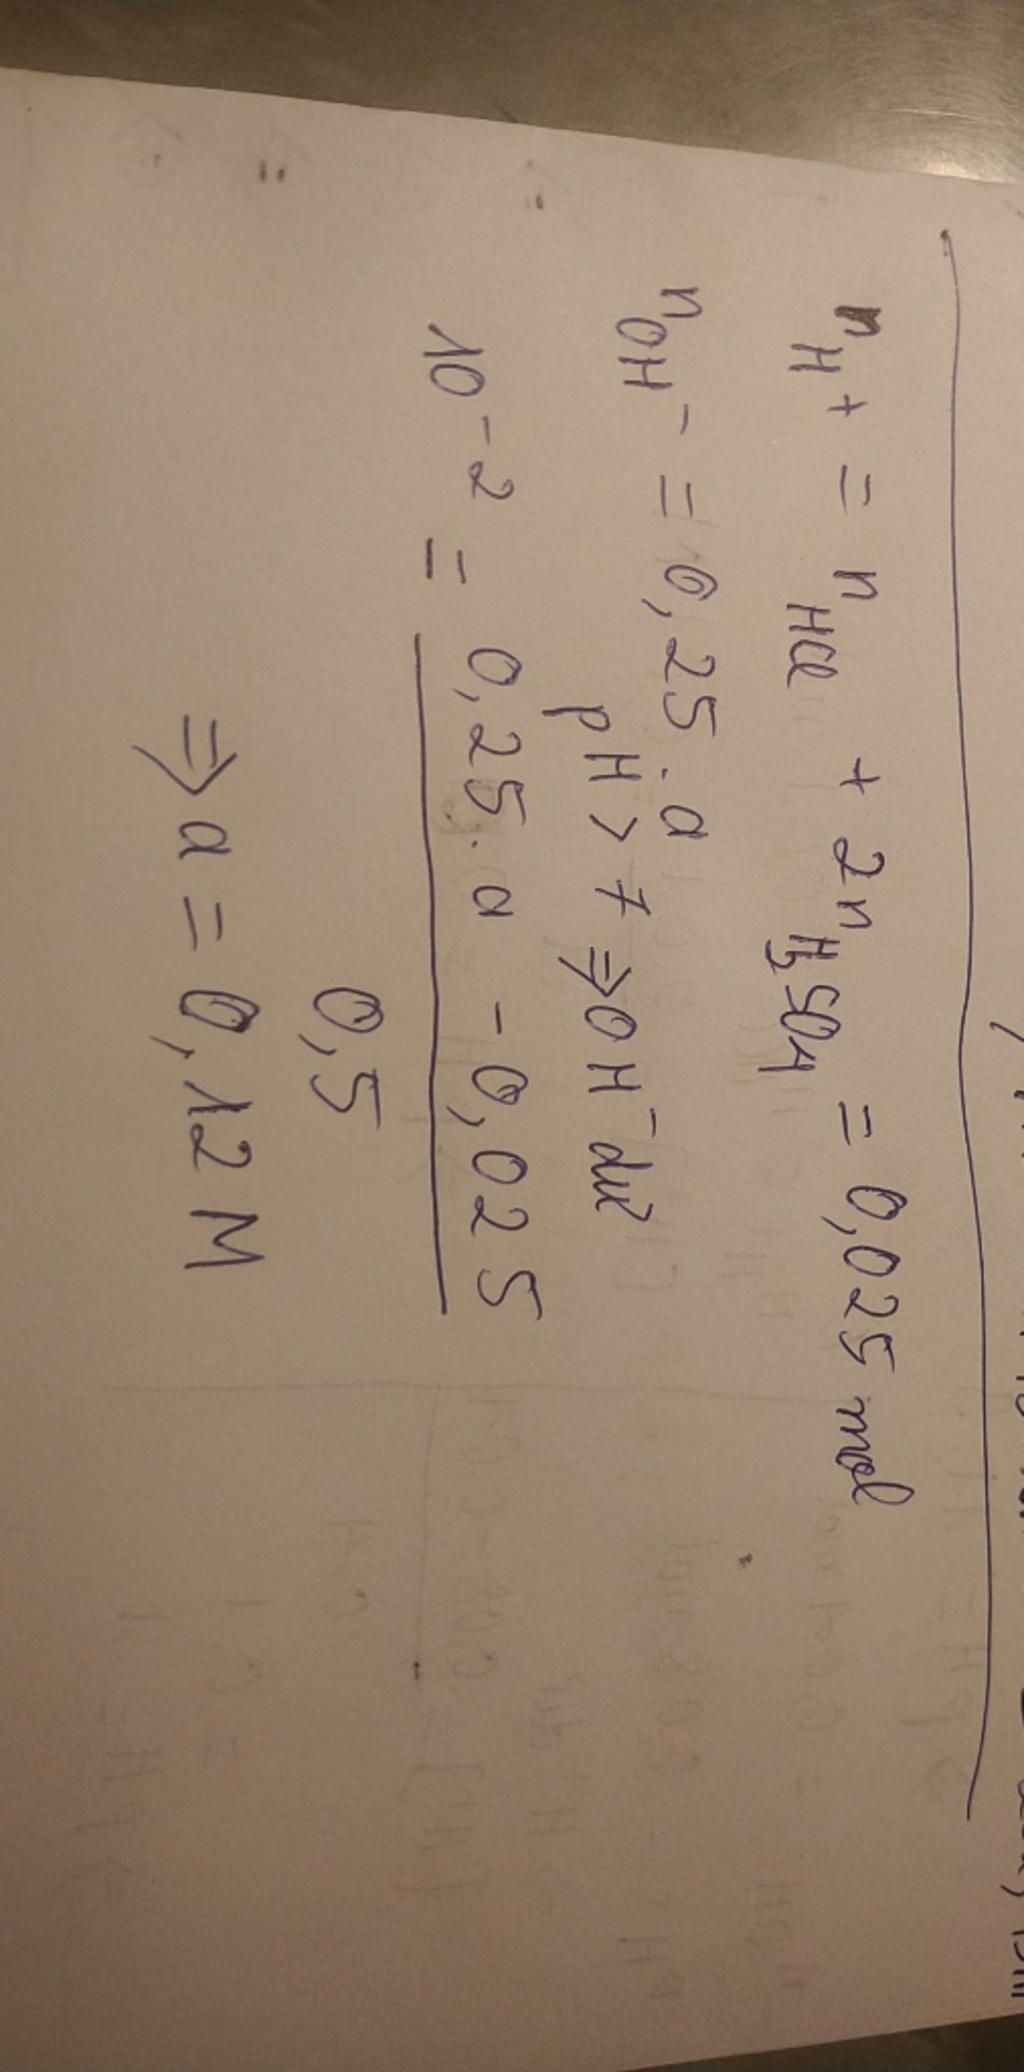 nH+ = nHCl + 2nH2SO4 = 0,025 mol
nOH- = 0,25.a
pH > 7 => OH- dư
10^-2 = (0,25.a - 0,025) / 0,5
=> a = 0,12 M